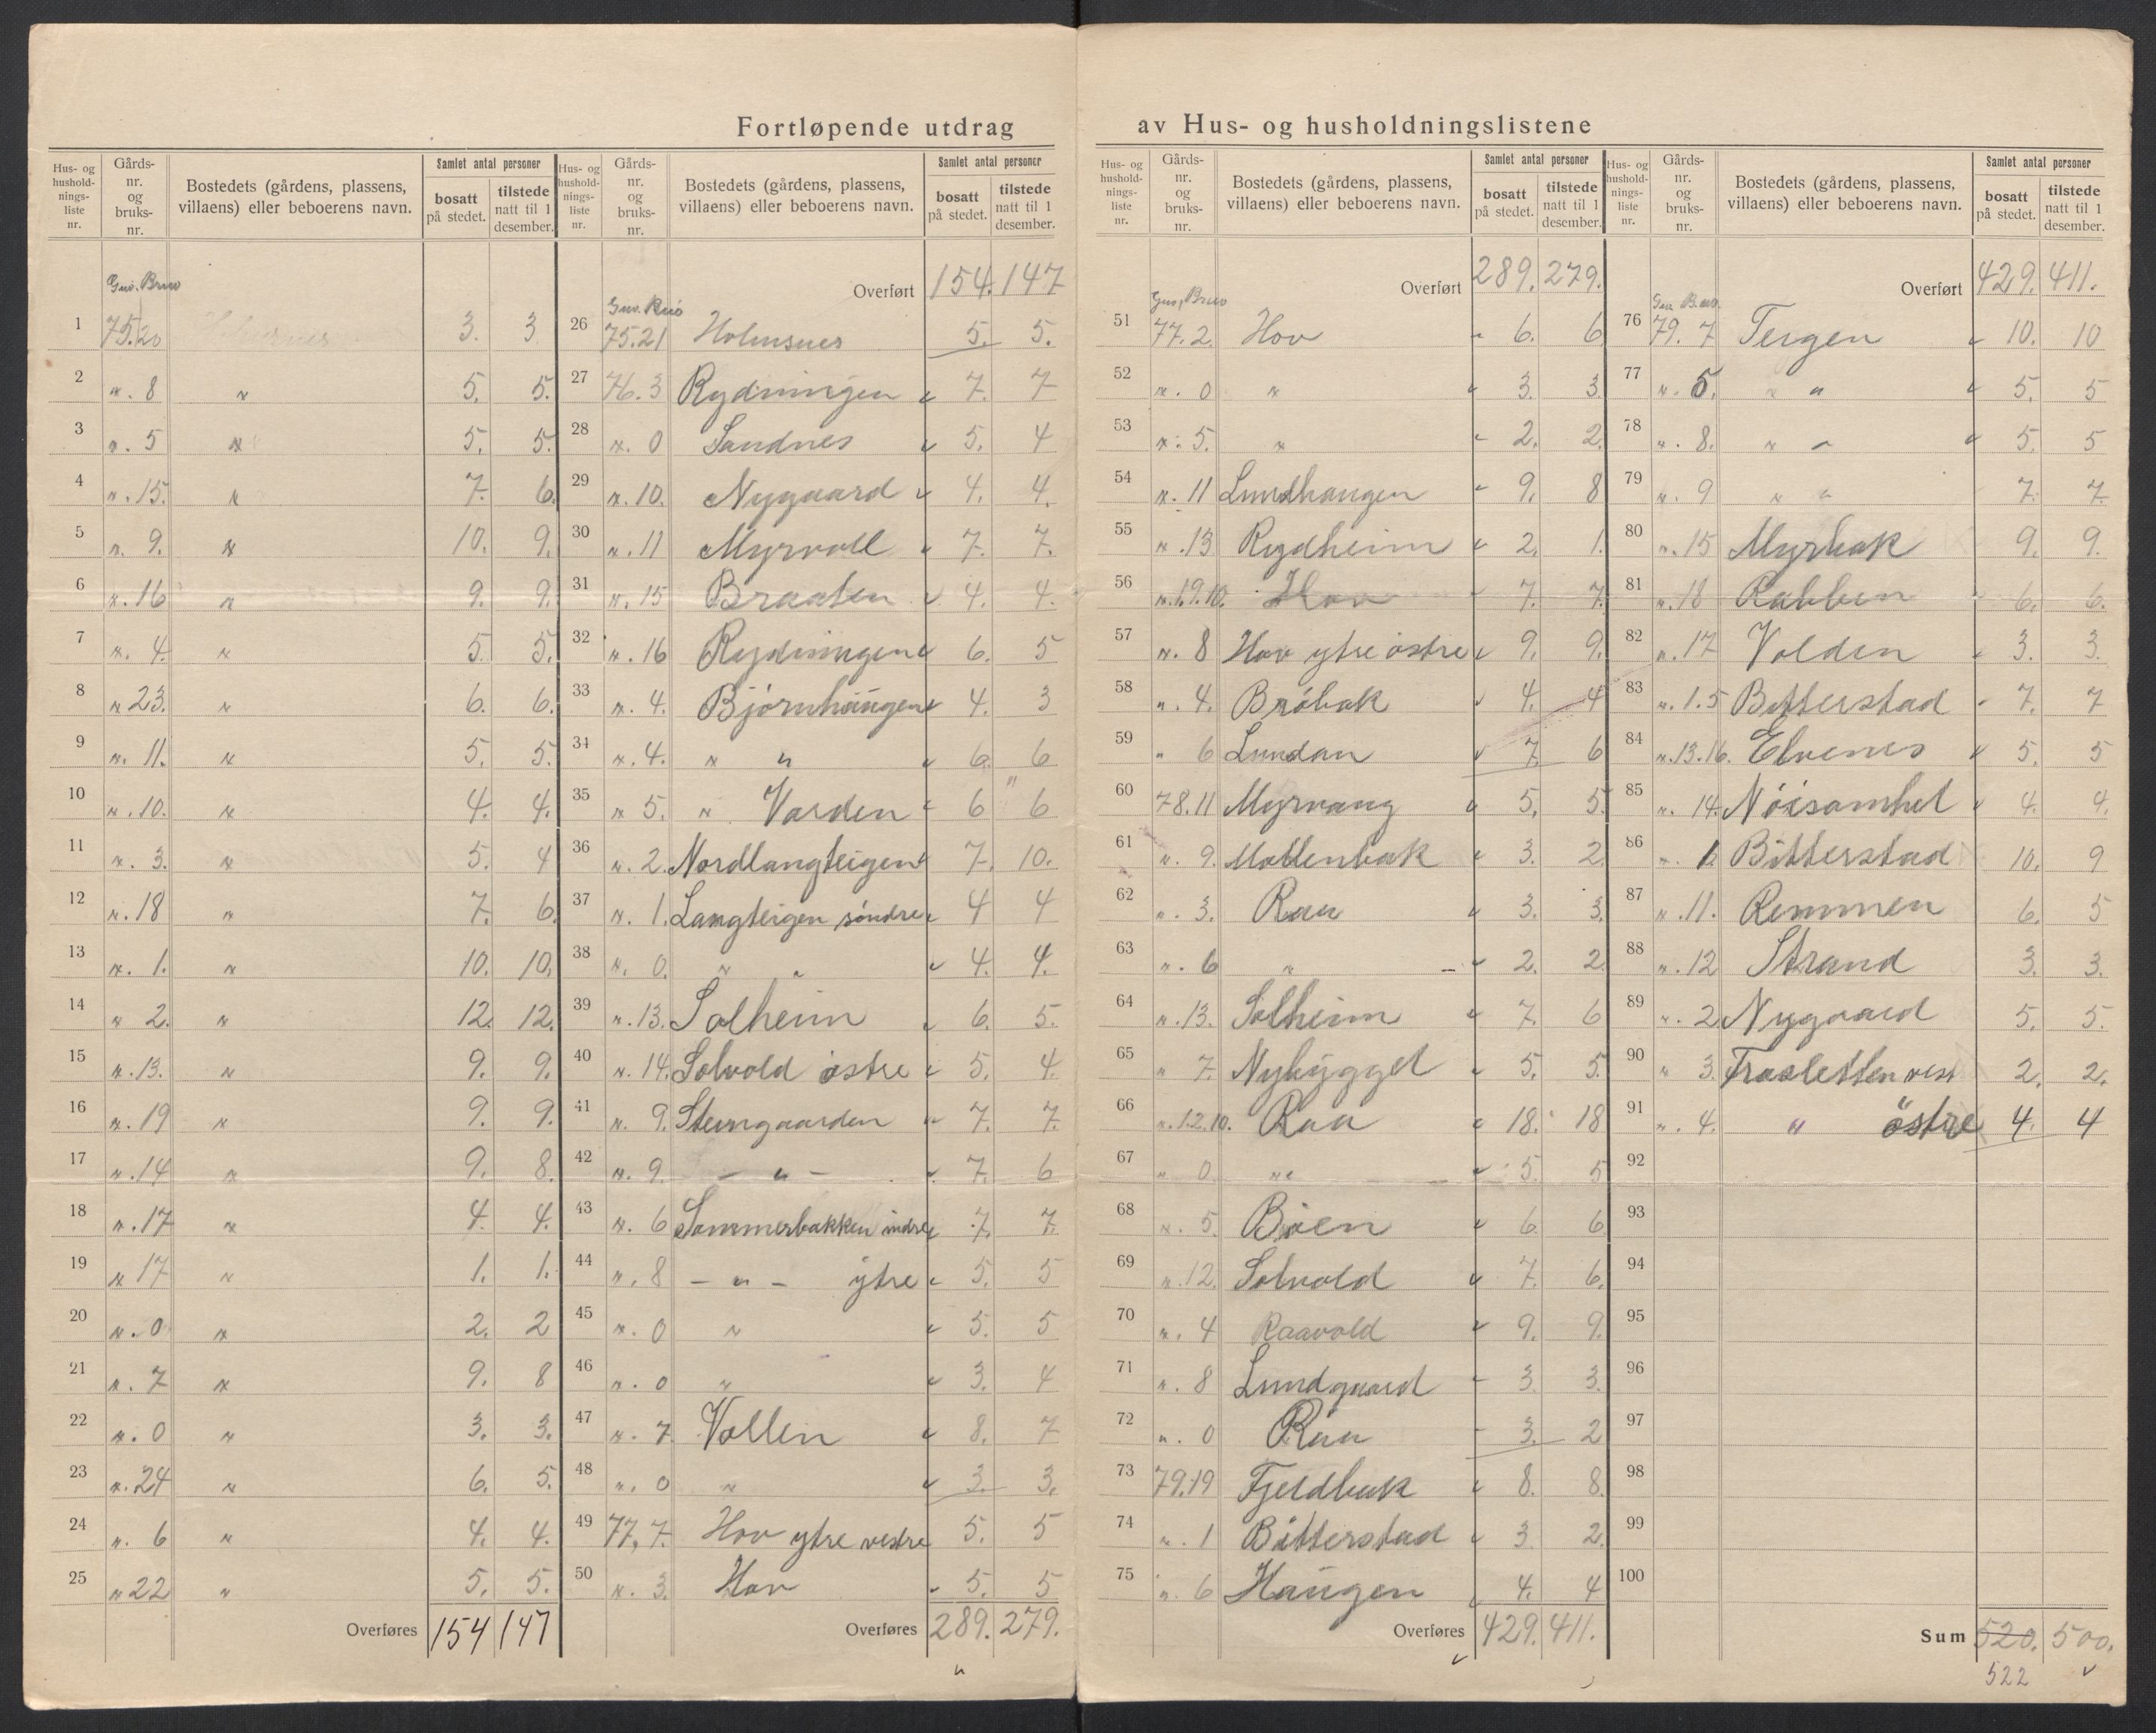 Fortløpende utdrag av Hus- og husholdningslistene
Hus- og husholdningsliste nr. | Gårds-nr. og bruks-nr. | Bostedets (gårdens, plassens, villaens) eller beboerens navn. | Samlet antal personer bosatt på stedet. | tilstede natt til 1 desember.
Gnr. Brnr
1 75.20 3. 3
2 „. 8 „ 5. 5.
3 „. 5 „ 5. 5.
4 „. 15. „ 7. 6.
5 „. 9. „ 10. 9.
6 „. 16 „ 9. 9.
7 „. 4. „ 5. 5.
8 „ 23. „ 6. 6.
9 „. 11. „ 5. 5.
10 „. 10. „ 4. 4.
11 „. 3. „ 5. 4
12 „. 18 „ 7. 6
13 „. 1. „ 10. 10.
14 „ 2. „ 12. 12.
15 „. 13. „ 9. 9.
16 „. 19 „ 9. 9.
17 „. 14 „ 9. 8.
18 „. 17 „ 4. 4.
19 „ 17 „ 1. 1.
20 „. 0 „ 2. 2
21 „. 7 „ 9. 8
22 „. 0 „ 3. 3.
23 „. 24 „ 6. 5.
24 „. 6 „ 4. 4.
25 „ 22 „ 5. 5.
Overføres 154 147
Hus- og husholdningsliste nr. | Gårds-nr. og bruks-nr. | Bostedets (gårdens, plassens, villaens) eller beboerens navn. | Samlet antal personer bosatt på stedet. | tilstede natt til 1 desember.
Overført 154. 147
26 75.21 Holmsnes 5. 5.
27 76.3 Rydningen 7. 7
28 „. 0 Sandnes 5. 4
29 „. 10. Nygaard 4. 4.
30 „. 11 Myrvoll 7. 7.
31 „. 15 Braaten 4. 4.
32 „. 16 Rydningen 6. 5
33 „. 4. Bjørnhaugen 4. 3
34 „. 4. „ „ 6. 6
35 „ 5. „ Varden 6 6
36 „. 2. Nordlangteigen 7. 10.
37 „. 1. Langteigen søndre 4 4
38 „. 0. „ „ 4. 4.
39 „. 13. Solheim 6. 5.
40 „. 14. Solvold østre 5. 4.
41 „. 9. Steingaarden 7. 7.
42 „. 9. - „ - 7. 6
43 „. 6 Sommerbakken indre 7. 7.
44 „. 8 - „ - ytre 5. 5
45 „. 0 „ 5. 5
46 „. 0 „ 3. 4
47 „. 7 Vollen 8. 7
48 „. 0 „ 3. 3.
49 77.7. Hov ytre vestre 5. 5
50 „. 3. Hov 5. 5
Overføres 289. 279.
Hus- og husholdningsliste nr. | Gårds-nr. og bruks-nr. | Bostedets (gårdens, plassens, villaens) eller beboerens navn. | Samlet antal personer bosatt på stedet. | tilstede natt til 1 desember.
Overført 289. 279.
51 77.2. Hov 6. 6
52 „. 0 „ 3. 3
53 „. 5. „ 2. 2
54 „. 11 Lundhaugen 9. 8
55 „. 13 Rydheim 2. 1.
56 „.1.9.10. Hov 7. 7.
57 „. 8 Hov ytre østre 9. 9.
58 „. 4. Brobak 4. 4
59 „ 6 Lundan 7. 6
60 78.11 Myrvang 5. 5
61 „. 9. Mollenbak 3. 2
62 „. 3. Raa 3. 3
63 „. 6 „ 2. 2
64 „. 13. Solheim 7. 6
65 „ 7. Nybygget 5. 5
66 „.1.2.10. Raa 18. 18
67 „ 0 „ 5 5
68 „. 5. Bøen 6. 6
69 „. 12. Solvold 7. 6.
70 „. 4 Raavold 9. 9.
71 „. 8 Lundgaard 3. 3.
72 „. 0 Raa 3. 2
73 79.19 Fjeldbak 8. 8.
74 „. 1 Bitterstad 3 2.
75 „. 6 Haugen 4. 4
Overføres 429. 411.
Hus- og husholdningsliste nr. | Gårds-nr. og bruks-nr. | Bostedets (gårdens, plassens, villaens) eller beboerens navn. | Samlet antal personer bosatt på stedet. | tilstede natt til 1 desember.
Overført 429. 411.
76 79.7 Teigen 10. 10
77 „. 5. „ „ 5. 5
78 „. 8. „ „ 5. 5
79 „. 9 „ „ 7. 7.
80 „. 15 Myrbak 9. 9.
81 „. 18 Rabben 6. 6.
82 „. 17 Volden 3. 3.
83 „. 1.5 Bitterstad 7. 7
84 „.13.16. Elvenes 5. 5
85 „. 14. Nøisomhet 4. 4.
86 „. 1 Bitterstad 10. 9
87 „. 11. Remmen 6. 5
88 „. 12 Strand 3. 3.
89 „. 2 Nygaard 5. 5.
90 „ 3. Traasletten vest 2. 2.
91 „. 4. „ östre 4. 4
92
93
94
95
96
97
98
99
100
Sum 520. 500.
522